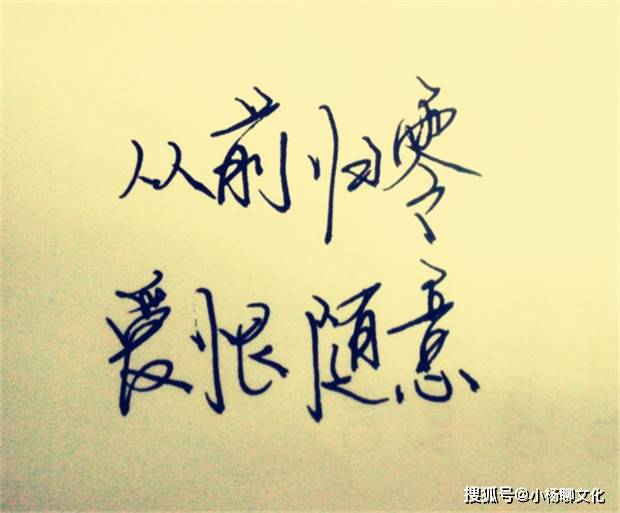 从前归零
爱恨随意
搜狐号@小杨聊文化